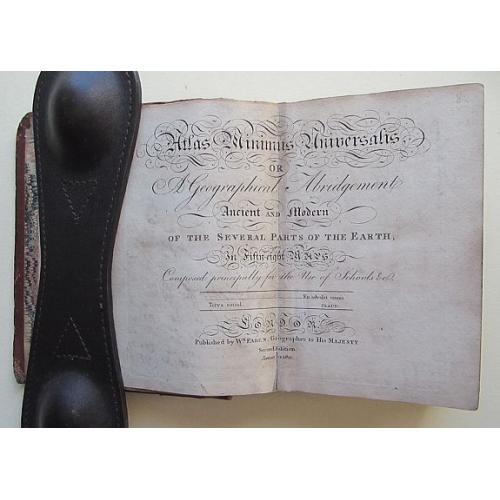 Atlas Minimus Universalis,
OR
A Geographical Abridgement
Ancient AND Modern
OF THE SEVERAL PARTS OF THE EARTH,
In Fifty eight MAPS
Composed principally for the Use of Schools &c.
LONDON
Published by Wm FADEN, Geographer to His MAJESTY
Second Edition